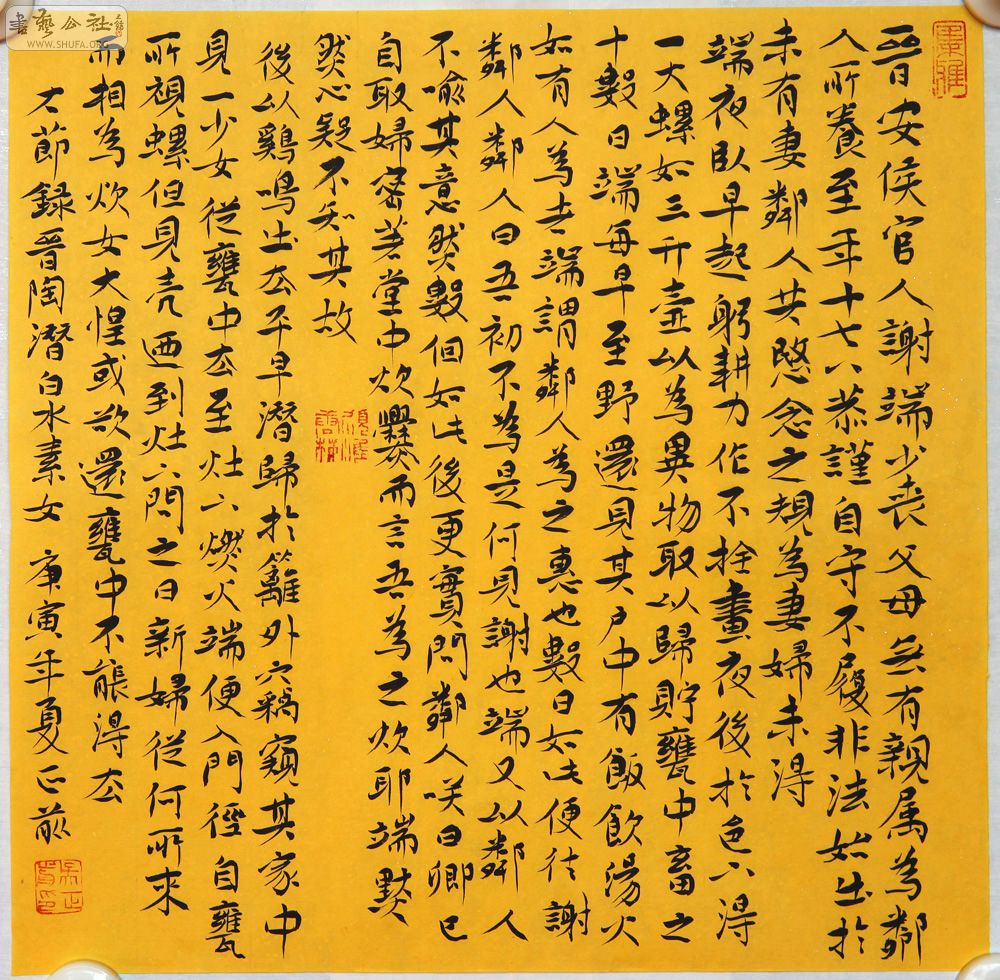 書藝公社
WWW.SHUFA.ORG
晉安侯官人謝端少喪父母無有親属為鄰
人所養至年十七八恭謹自守不履非法始出於
未有妻鄰人共愍念之規為妻婦未得
端夜臥早起躬耕力作不捨晝夜後於邑下得
一大螺如三升壺以為異物取以歸貯甕中畜之
十數日端每早至野還見其户中有飯飲湯火
如有人為者端謂鄰人為之惠也數日如此便往謝
鄰人鄰人曰吾初不為是何見謝也端又以鄰人
不喻其意然數但如此後更實問鄰人咲曰卿已
自取婦密著堂中炊爨而言吾為之炊耶端默
然心疑不知其故
後以鷄鳴出去平早潛歸於籬外穴竊窺其家中
見一少女從甕中去至灶下燃火端便入門徑自甕
所視螺但見壳迺到灶下問之曰新婦從何所來
而相為炊女大惶或欲還甕中不能得去
右節録晉陶潛白水素女 庚寅年夏正前